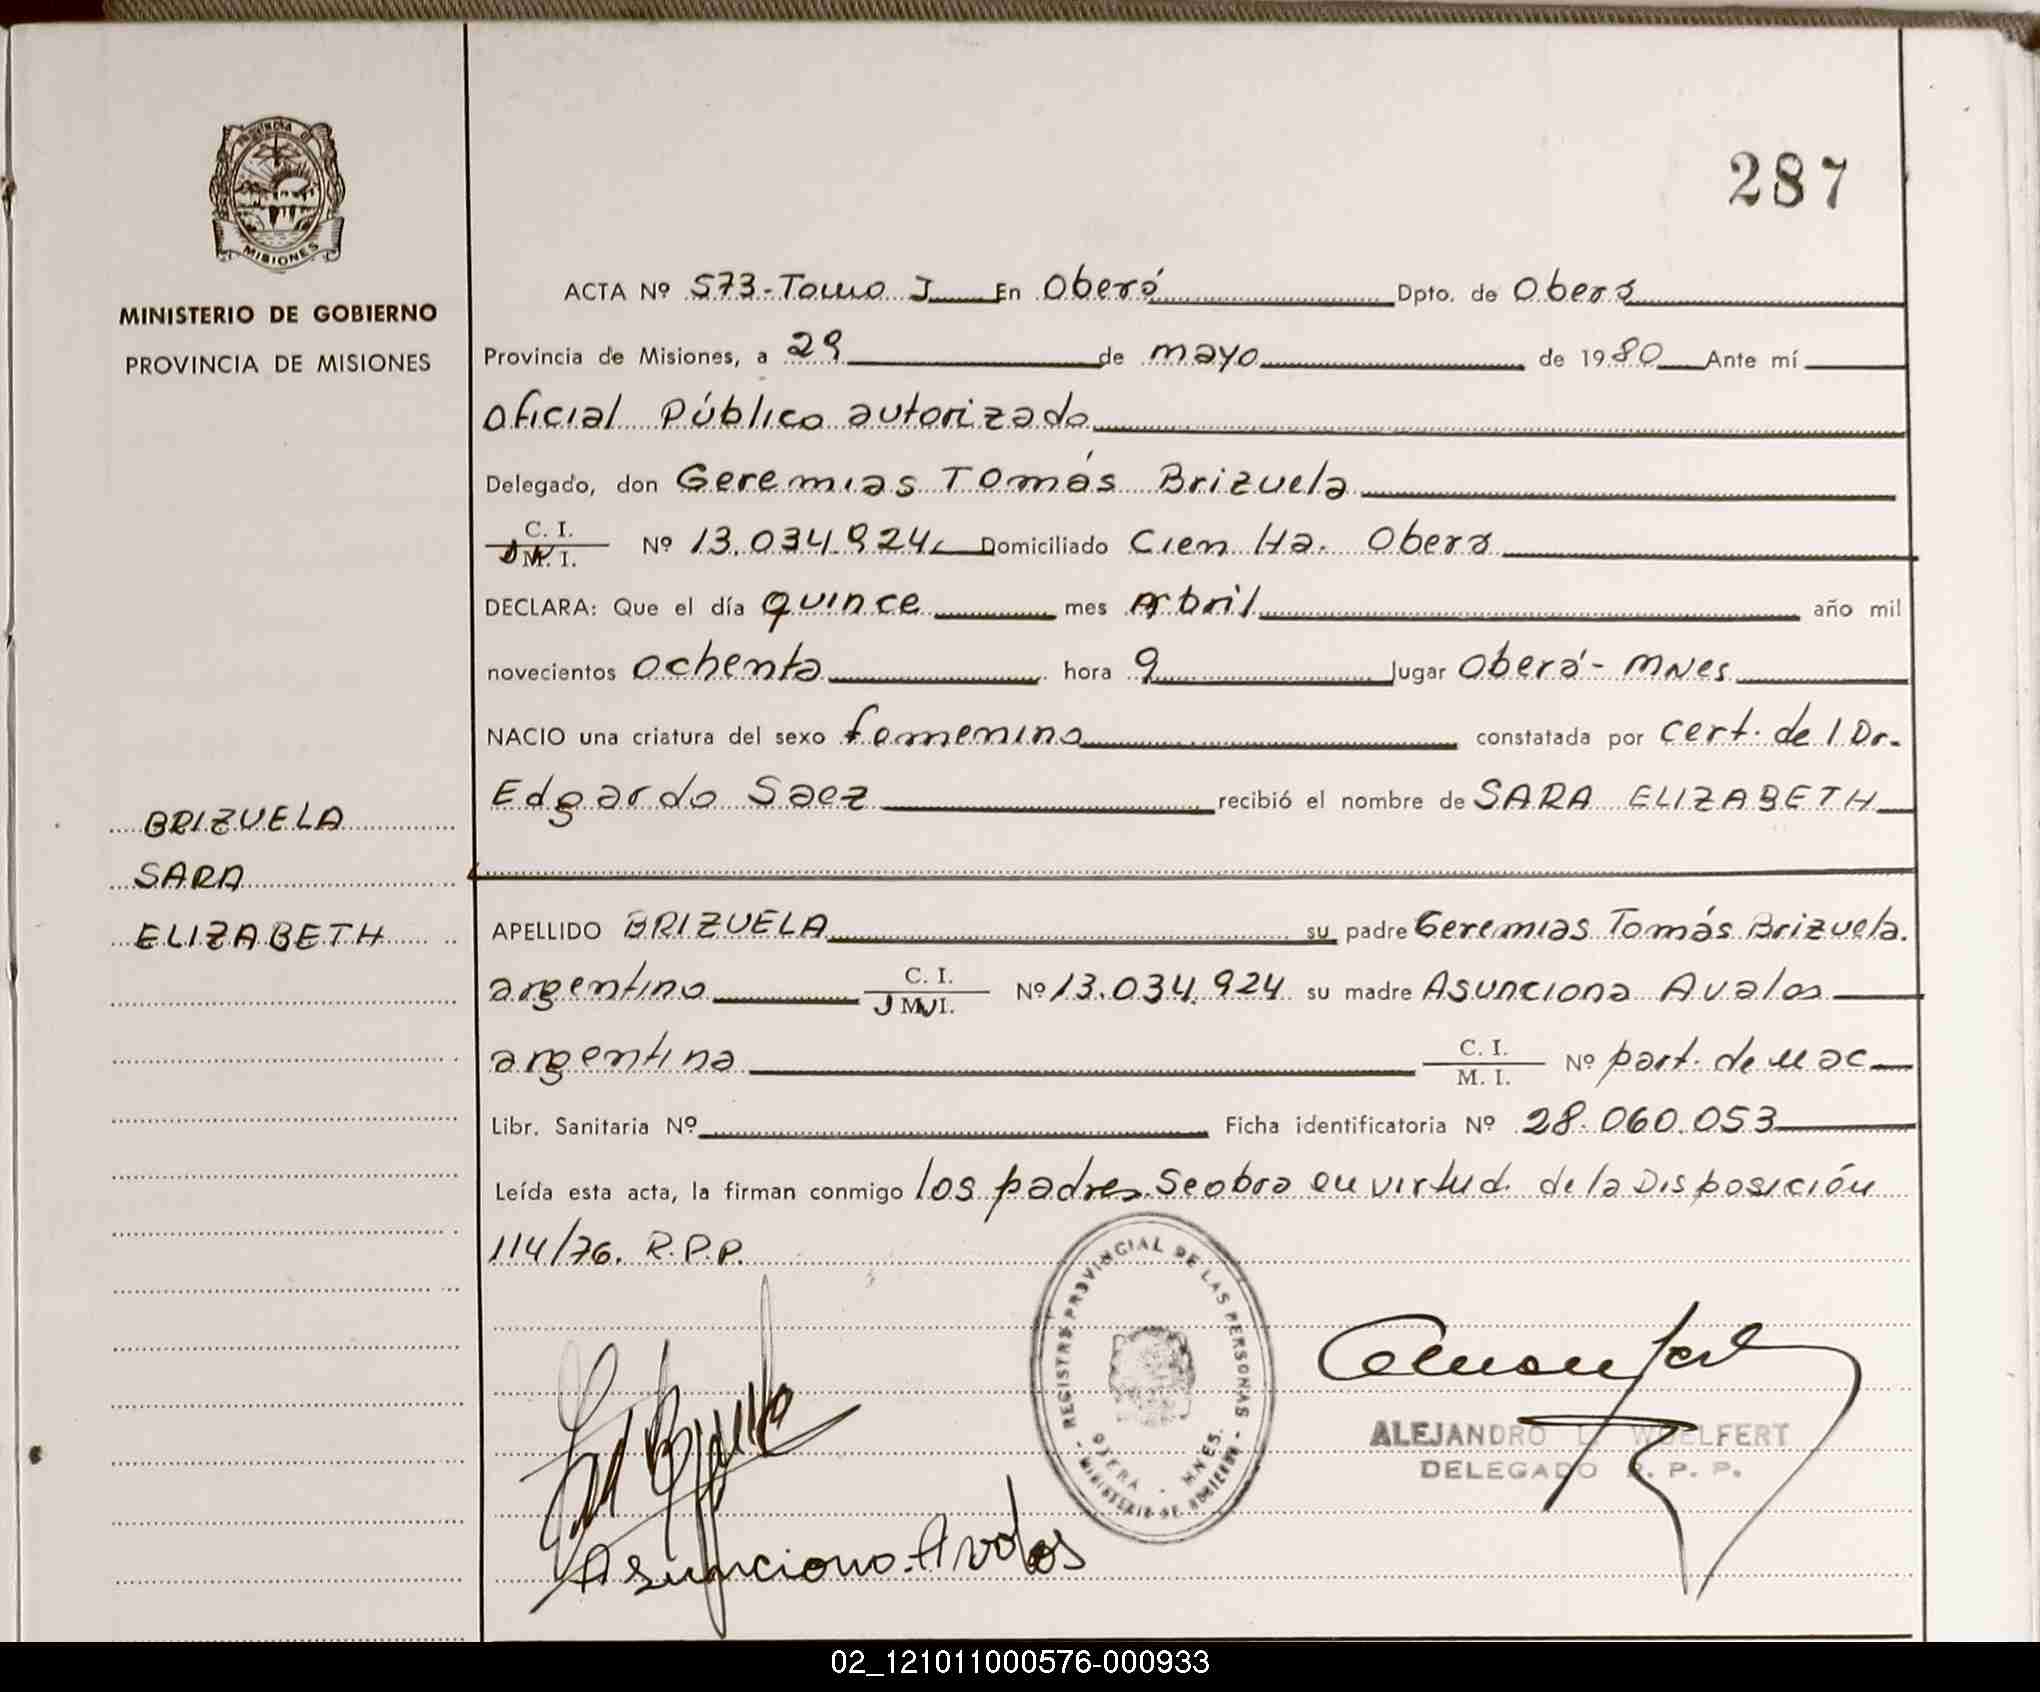 287
PROVINCIA DE
MISIONES
MINISTERIO DE GOBIERNO
PROVINCIA DE MISIONES
ACTA Nº 573-Tomo I En Oberá Dpto. de Oberá
Provincia de Misiones, a 29 de mayo de 1980 Ante mí
Oficial Público autorizado
Delegado, don Geremias Tomás Brizuela
C. I.
M. I. Nº 13.034.924 Domiciliado Cien Ha. Oberá
DECLARA: Que el día quince mes Abril año mil
novecientos ochenta hora 9 lugar Oberá - MNes
NACIO una criatura del sexo femenino constatada por cert. del Dr.
Edgardo Saez recibió el nombre de SARA ELIZABETH
BRIZUELA
SARA
ELIZABETH
APELLIDO BRIZUELA su padre Geremias Tomás Brizuela.
argentino C. I.
M. I. Nº 13.034.924 su madre Asunciona Avalos
argentina C. I.
M. I. Nº part. de nac
Libr. Sanitaria Nº Ficha identificatoria Nº 28.060.053
Leída esta acta, la firman conmigo los padres. Se obra en virtud de la Disposición
114/76. R.P.P.
REGISTRO PROVINCIAL DE LAS PERSONAS
OBERA - MNES.
- MINISTERIO DE GOBIERNO -
ALEJANDRO L. WOELFERT
DELEGADO R. P. P.
Asunciona Avalos
02_121011000576-000933